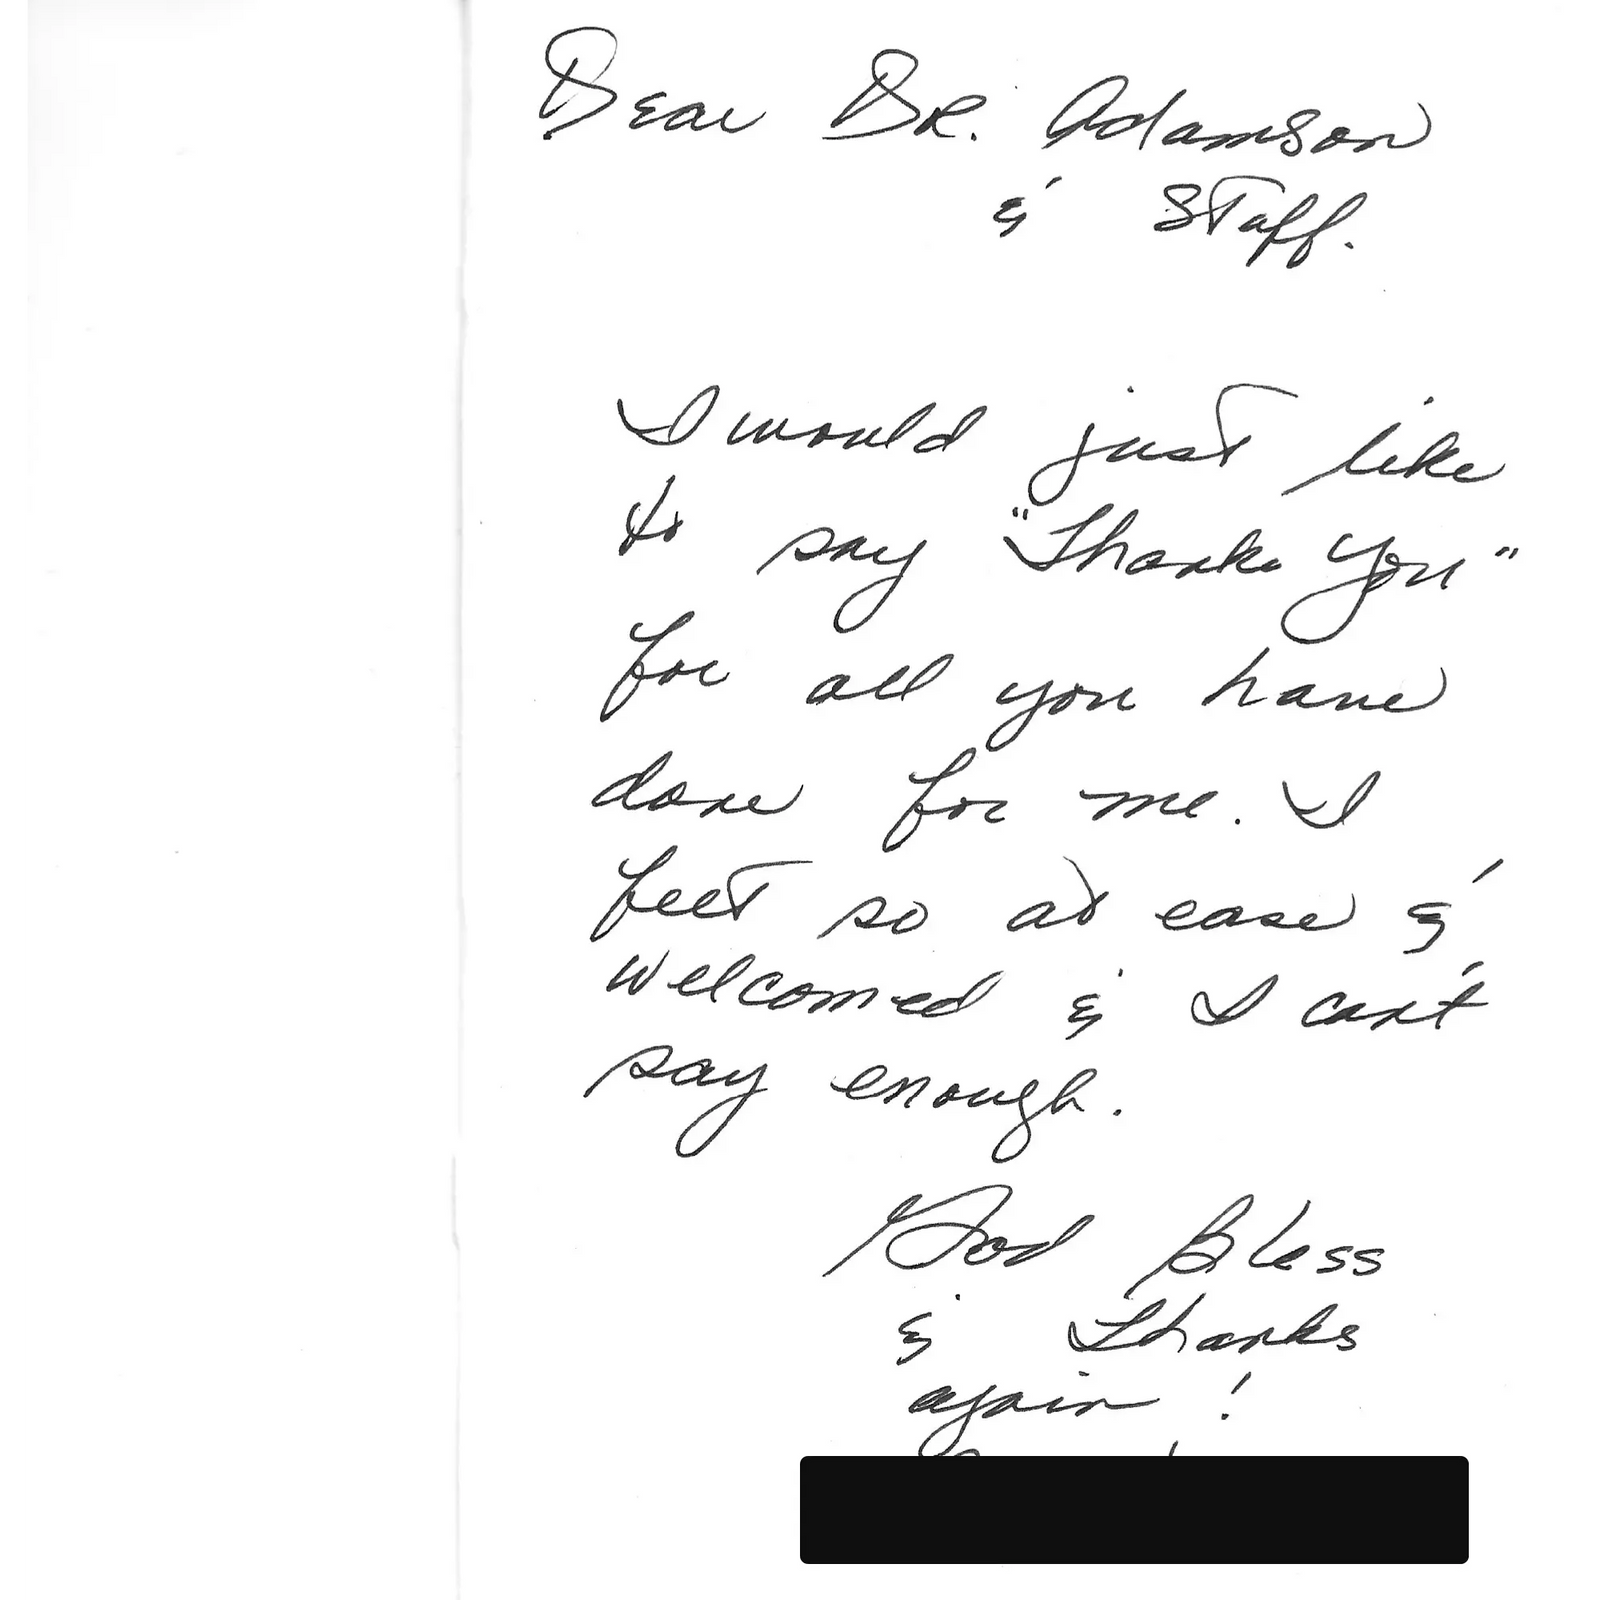 Dear DR. Adamson
& Staff.
I would just like
to say "Thank You"
for all you have
done for me. I
feel so at ease &
welcomed & I can't
say enough.
God Bless
& Thanks
again!